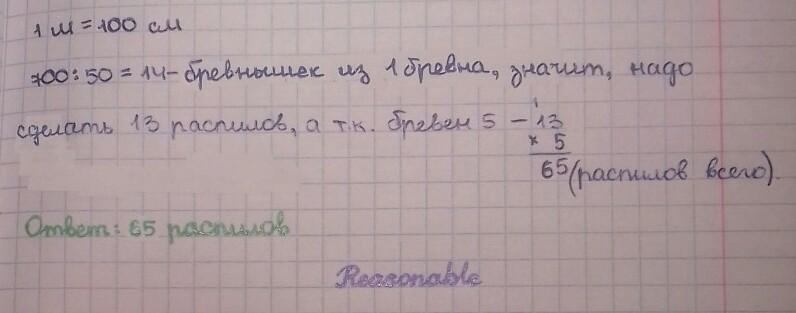 1 м = 100 см
700:50 = 14 - бревнышек из 1 бревна, значит, надо
сделать 13 распилов, а т.к. бревен 5 - 13
1
× 5
65 (распилов всего).
Ответ: 65 распилов
Reasonable